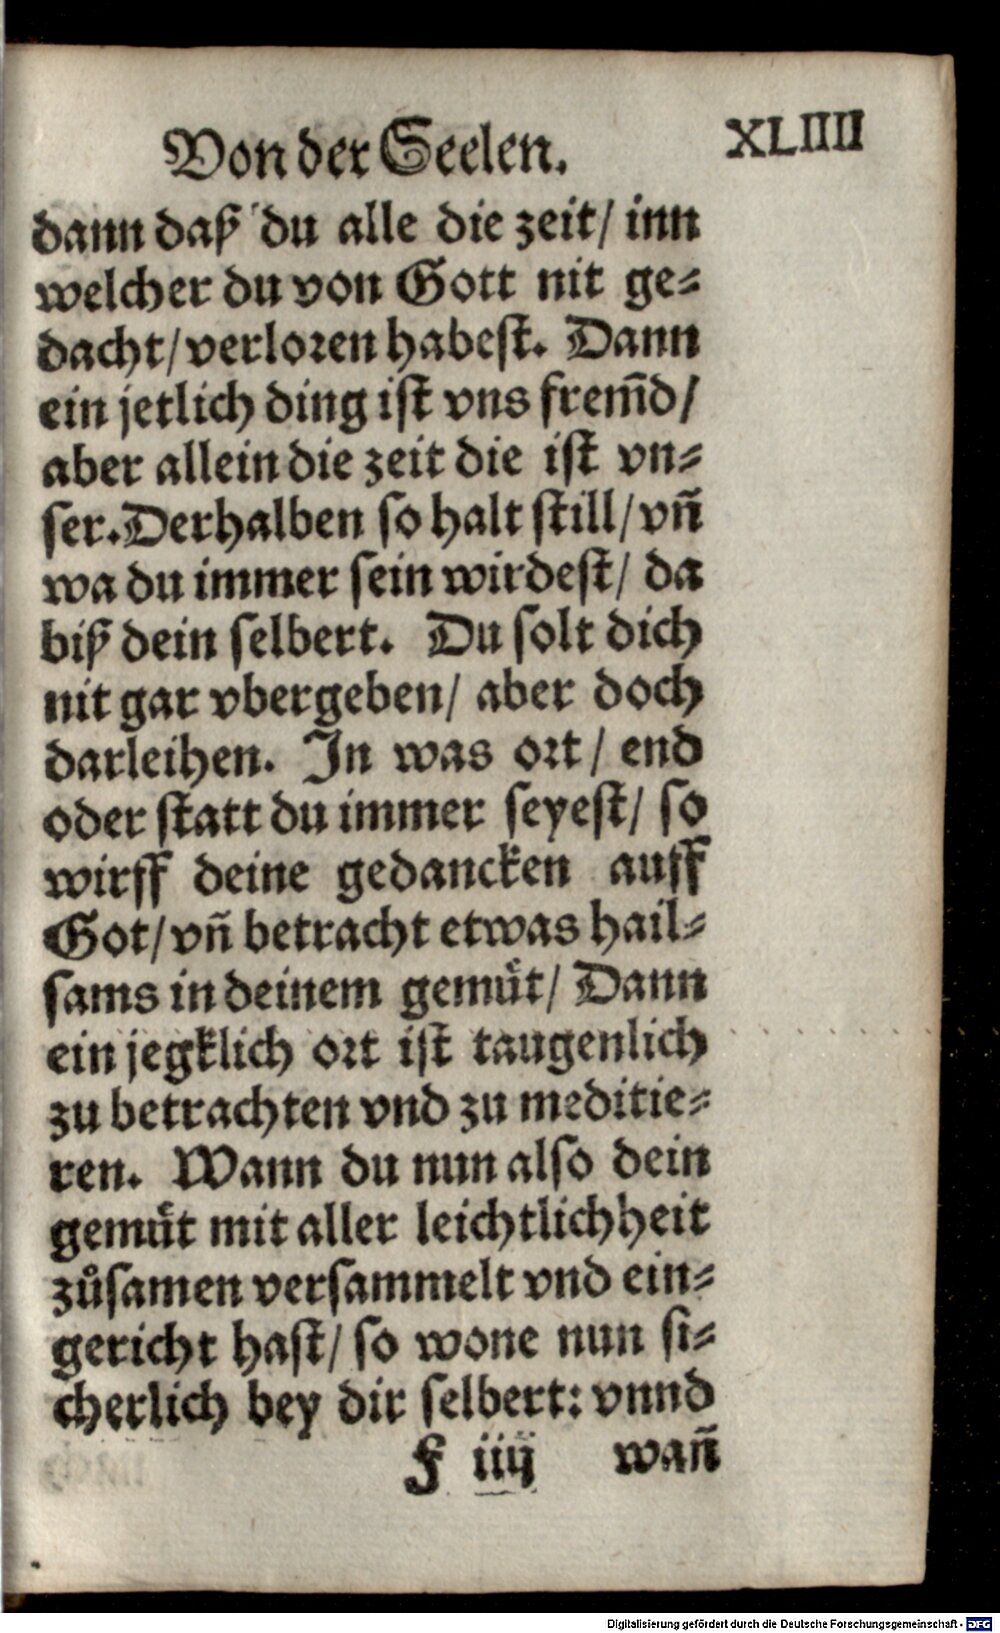 Von der Seelen. XLIIII
dann daß du alle die zeit/ inn
welcher du von Gott nit ge⸗
dacht/ verloren habest. Dann
ein jetlich ding ist vns frem̄d/
aber allein die zeit die ist vn⸗
ser. Derhalben so halt still/ vn̄
wa du immer sein wirdest/ da
biß dein selbert. Du solt dich
nit gar vbergeben/ aber doch
darleihen. In was ort/ end
oder statt du immer seyest/ so
wirff deine gedancken auff
Got/ vn̄ betracht etwas hail⸗
sams in deinem gemuͤt/ Dann
ein jegklich ort ist taugenlich
zu betrachten vnd zu meditie⸗
ren. Wann du nun also dein
gemuͤt mit aller leichtlichheit
zuͦsamen versammelt vnd ein⸗
gericht hast/ so wone nun si⸗
cherlich bey dir selbert: vnnd
F iiij wan̄
Digitalisierung gefördert durch die Deutsche Forschungsgemeinschaft - DFG